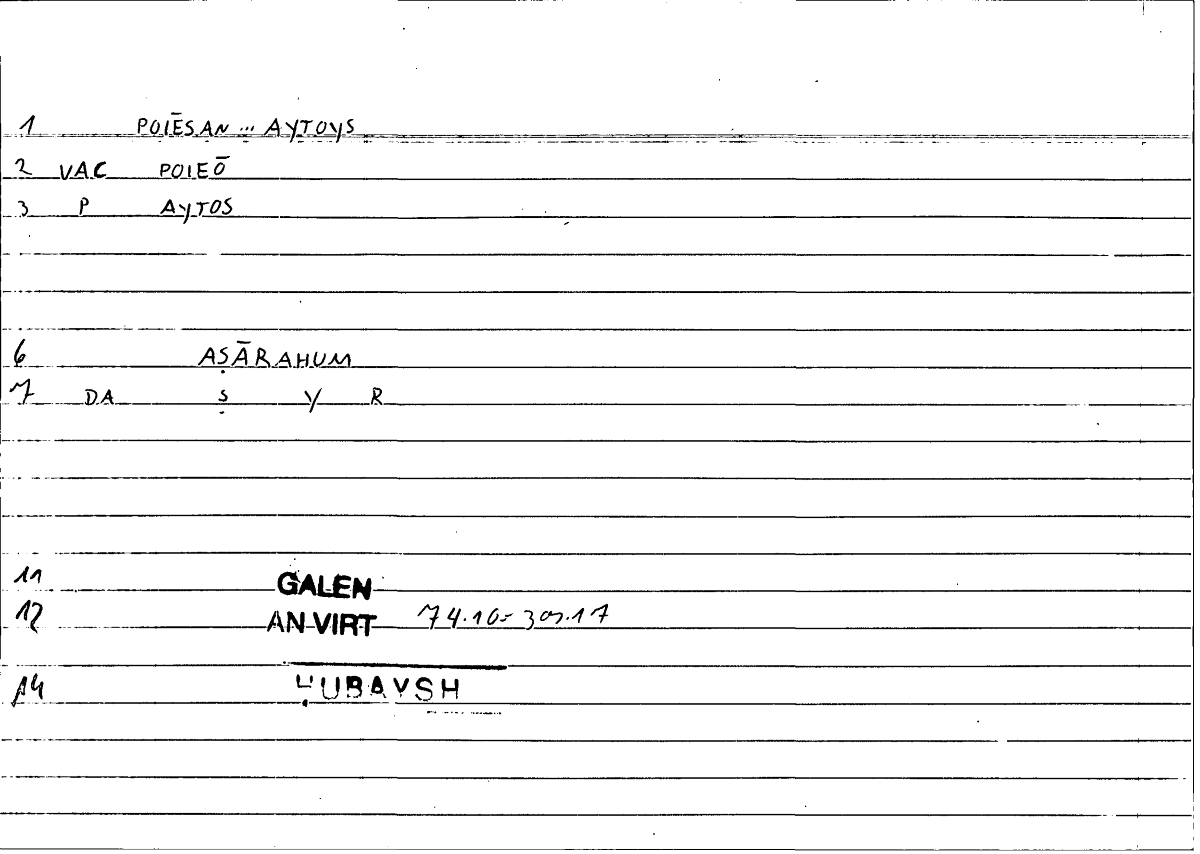 1 POIĒSAN ... AYTOYS
2 VAC POIEŌ
3 P AYTOS
6 AṢĀRAHUM
7 DA Ṣ Y R
11 GALEN
12 AN VIRT 74.16=
14 ḤUBAYSH